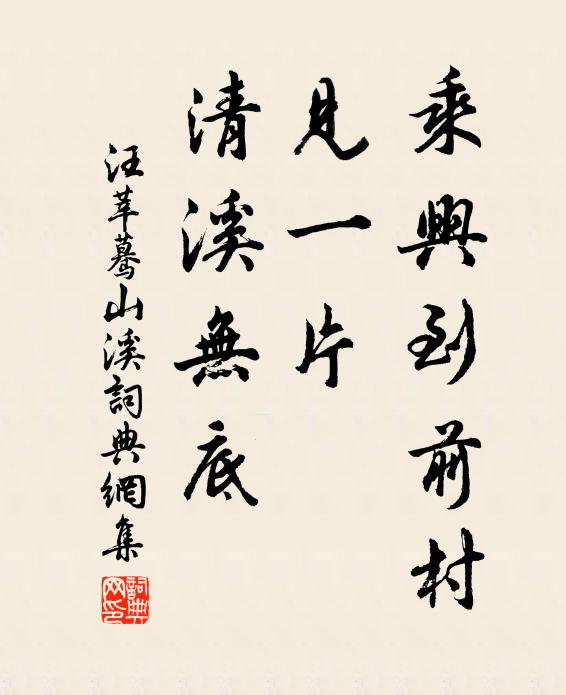 乘興到前村
見一片
清溪無底
汪莘驀山溪詞典網集
詞典網印